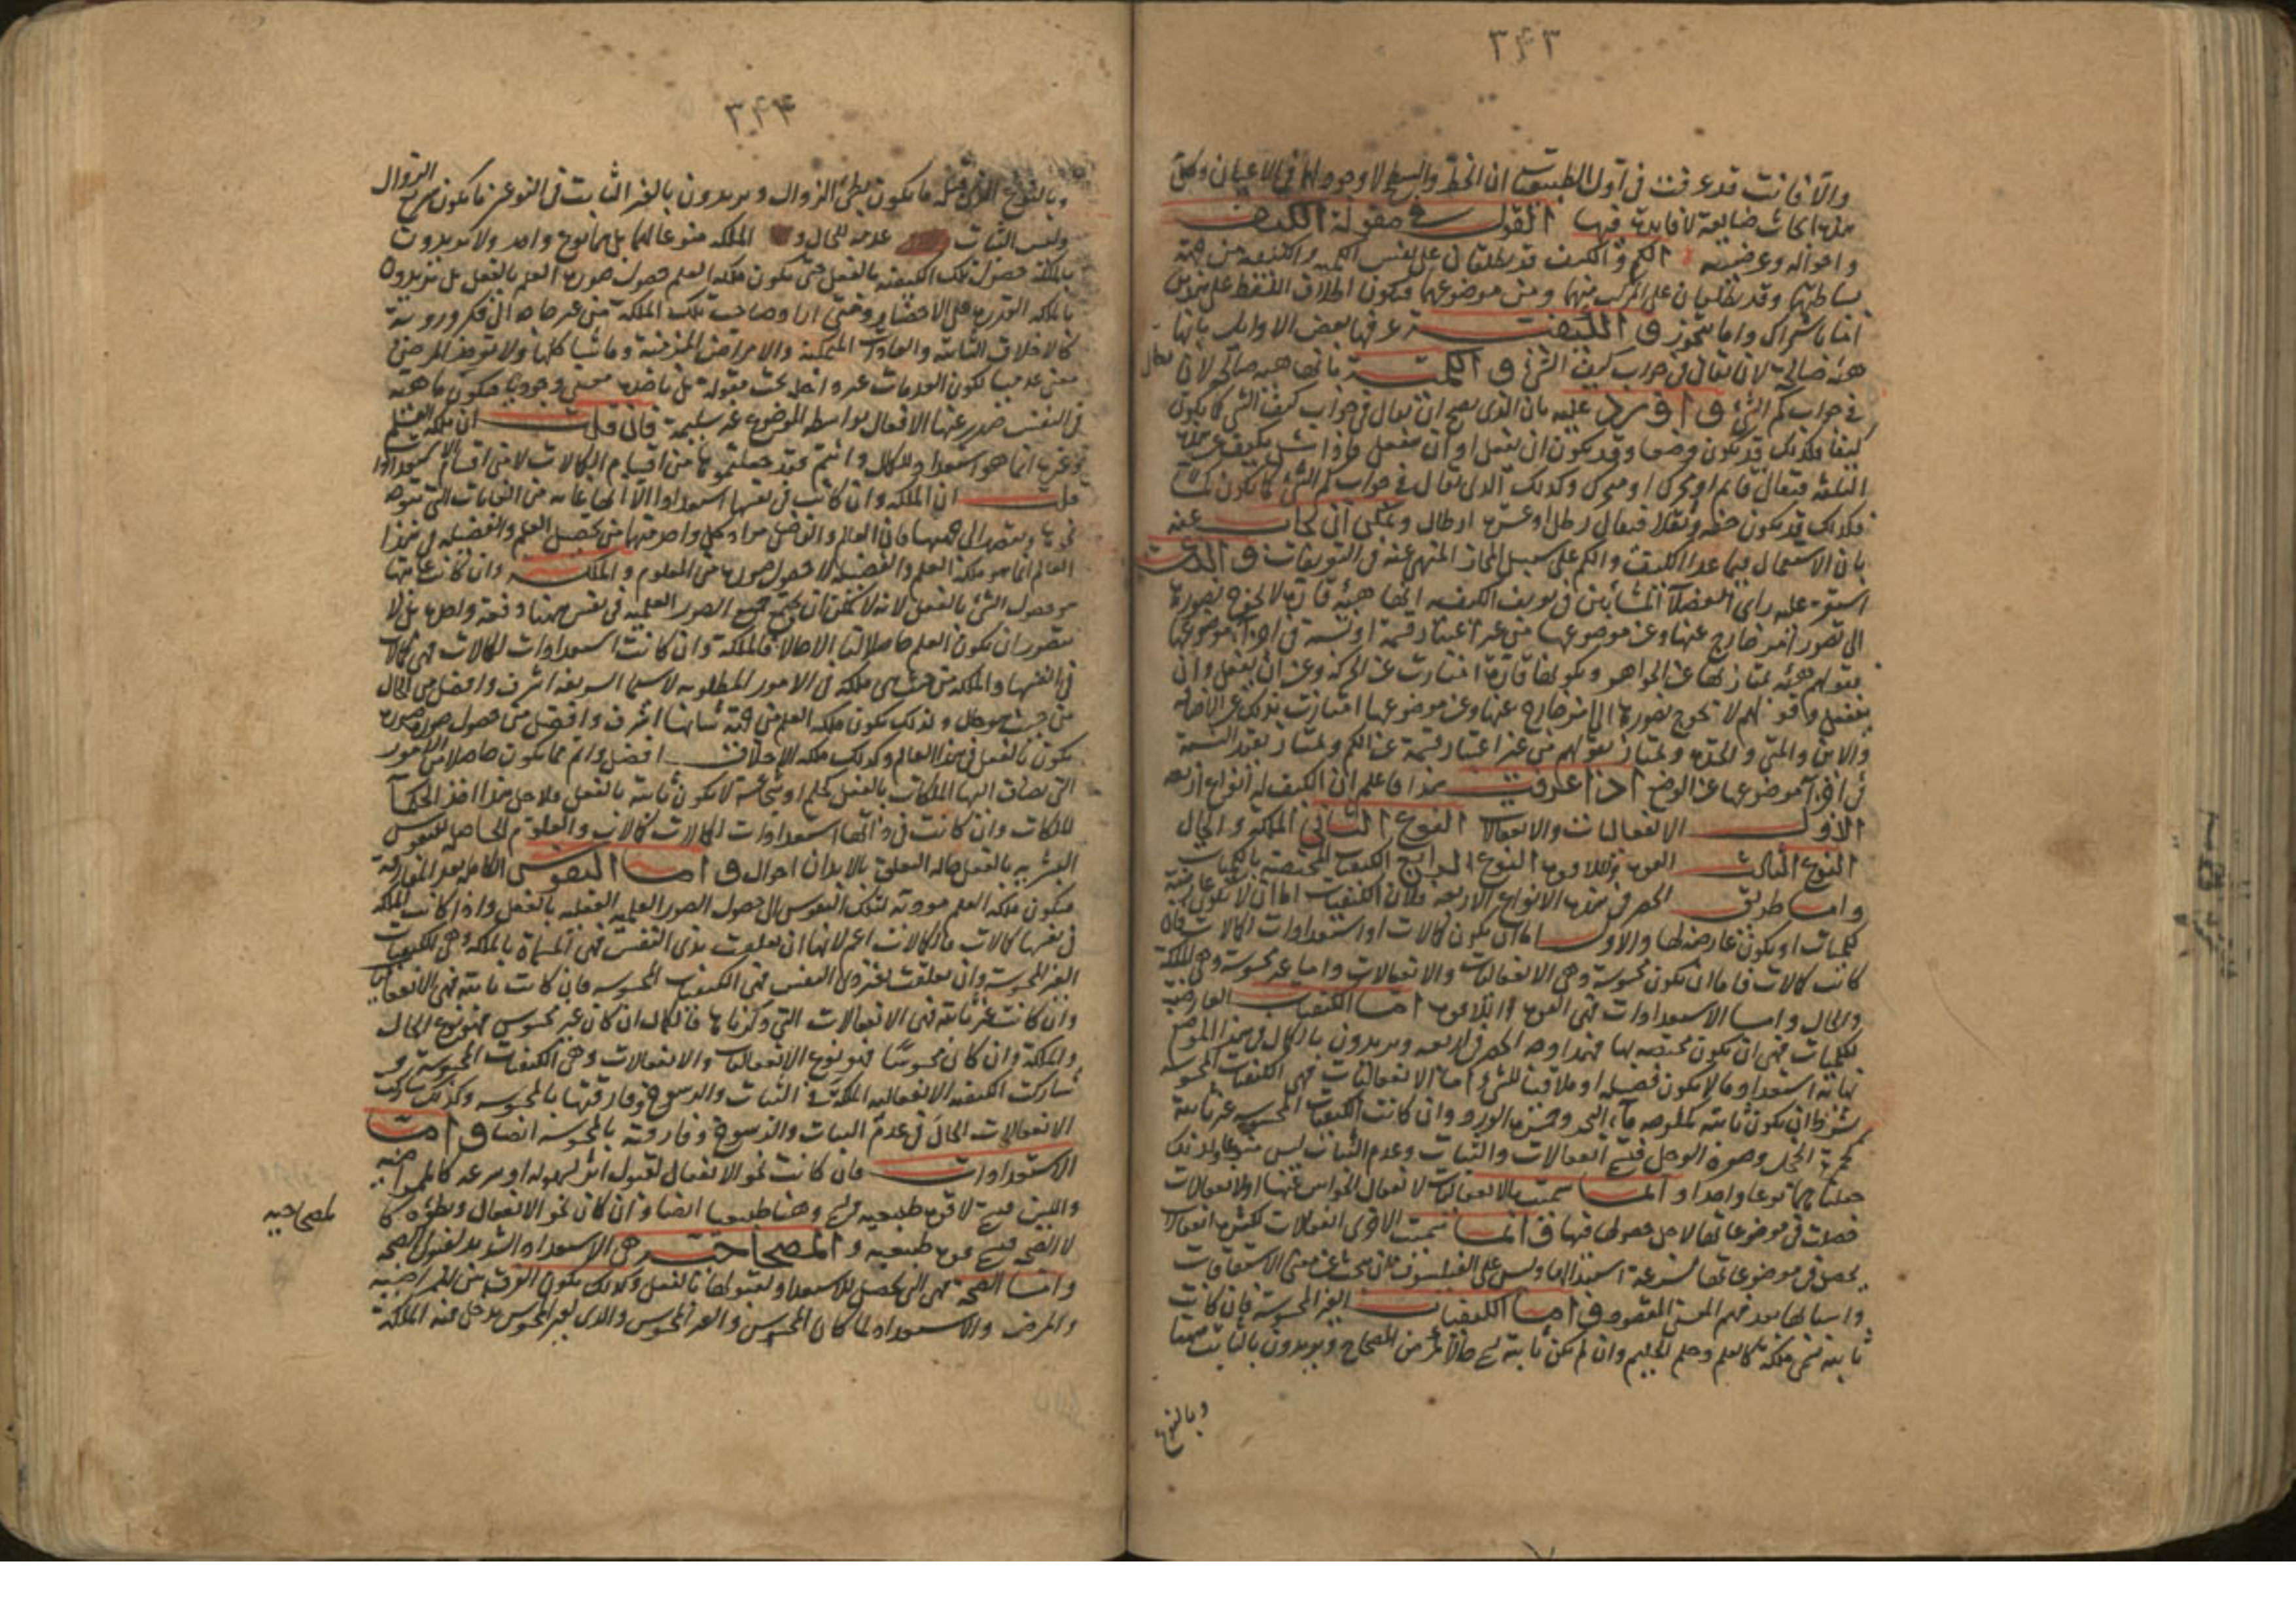 ٣٤٣
والا فانت قد عرفت في اول الطبيعيات ان الخط والسطح لا وجود لهما في الاعيان وكل
هذه ابحاث ضايعة لا فايدة فيها القول في مقولة الكيف
واحواله وعرضيته الكم والكيف قد يطلقان على نفس الكمية والكيفية من جهة
بساطتهما وقد يطلقان على المركب منهما ومن موضوعهما فيكون اطلاق اللفظ على هذين
اما باشتراك واما بتجوز و الكيفية عرفها بعض الاوايل بانها
هيئة صالحة لان تقال في جواب كيف الشئ و الكمية بانها هيئة صالحة لان تقال
في جواب كم الشئ و اورد عليه بان الذي يصح ان يقال في جواب كيف الشئ كما يكون
كيفا فكذلك قد يكون وضعا وقد يكون ان يفعل او ان ينفعل فاذا سئل بكيف عن هذه
الثلثة فيقال قايم او محرك او متحرك وكذلك الذي يقال في جواب كم الشئ كما يكون كما
فكذلك قد يكون خفة وثقلا فيقال رطل او عشرة ارطال ويمكن ان يجاب عنه
بان الاستعمال فيما عدا الكيف والكم على سبيل المجاز المنهى عنه في التعريفات و الذي
استقر عليه راى الفضلاء المشائين في تعريف الكيفية انها هيئة قارة لا يحوج تصورها
الى تصور امر خارج عنها وعن موضوعها من غير اعتبار قسمة او نسبة في اجزاء موضوعها
فبقولهم هيئة يمتاز بها عن الجواهر وبكونها قارة امتازت عن الحركة وعن ان يفعل وان
ينفعل وقولهم لا يحوج تصورها الى امر خارج عنها وعن موضوعها امتازت بذلك عن الاضافة
والاين والمتى والجدة ويمتاز بقولهم من غير اعتبار قسمة عن الكم ويمتاز بقيد النسبة
في اجزاء موضوعها عن الوضع اذا عرفت هذا فاعلم ان الكيف له انواع اربعة
الاول الانفعاليات والانفعالات النوع الثاني الملكة والحال
النوع الثالث القوة واللاقوة النوع الرابع الكيفيات المختصة بالكميات
واما طريق الحصر في هذه الانواع الاربعة فلان الكيفيات اما ان لا تكون عارضة
للكميات او يكون عارضة لها والاول اما ان يكون كمالات او استعدادات لكمالات فان
كانت كمالات فاما ان يكون محسوسة وهي الانفعاليات والانفعالات واما غير محسوسة وهي الملكة
والحال واما الاستعدادات فهي القوة واللاقوة اما الكيفيات العارضة
للكميات فهي ان يكون مختصة بها فهذا وجه الحصر في اربعة ويريدون بالكمال في هذا الموضع
نهاية استعداد ما لا يكون فضيلة او ملائما للشئ اما الانفعاليات فهي الكيفيات المحسوسة
بشرط ان يكون ثابتة كملوحة ماء البحر وحمرة الورد وان كانت الكيفيات المحسوسة غير ثابتة
كحمرة الخجل وصفرة الوجل فتسمى انفعالات والثبات وعدم الثبات ليس منوعا ولذلك
جعلناهما نوعا واحدا و انما سميت بالانفعاليات لانفعال الحواس عنها او لانفعالات
حصلت في موضوعاتها لاجل حصولها فيها و انما سميت الاخرى انفعالات لكثرة انفعالات
يحصل في موضوعاتها
واسبابها بعد فهم المعنى المقصود و اما الكيفيات الغير المحسوسة فان كانت
ثابتة تسمى ملكة كالعلم وحلم الحليم وان لم تكن ثابتة تسمى حالا كمرض المصحاح ويريدون بالثابت ههنا
وبالنوع
٣٤٤
وبالنوع الذي قبله ما يكون بطئ الزوال ويريدون بالغير الثابت في النوعين ما يكون سريع الزوال
وليس الثبات علامة للحال و الملكة منوعا لهما بل هما نوع واحد ولا يريدون
بالملكة حصول تلك الكيفية بالفعل حتى يكون ملكة العلم حصول صورة العلم بالفعل بل يريدون
بالملكة القدرة على الاحضار وقتى اراد صاحب تلك الملكة من غير حاجة الى فكر وروية
كالاخلاق الثابتة والعادات المتمكنة والامراض المزمنة وما شاكلها ولا توخذ المرض
معنى عدميا لكون العدميات غير داخلة تحت مقولة بل ياخذه معنى وجوديا فيكون ماهية
في النفس تصدر عنها الافعال بواسطة الموضوع غير سليمة فان قلت ان ملكة العلم
وغيرها انما هو استعداد للكمال وانتم فقد جعلتموها من اقسام الكمالات لا من اقسام الاستعدادات
قلت ان الملكة وان كانت في نفسها استعدادا الا انها غاية من الغايات التي يتوجه
نحوها ويقصد الى تحصيلها فان العالم والفاضل مراد كل واحد منهما من تحصيل العلم والفضيلة في هذا
العالم انما هو ملكة العلم والفضيلة لا حصول صورة من المعلوم و الملكة وان كانت غايتها
هو حصول الشئ بالفعل لانه لا يمكن ان يجتمع جميع الصور العلمية في نفس منا دفعة واحدة بل لا
يتصور ان يكون العلم حاصلا لنا الا حالا فالملكة وان كانت استعدادات لكمالات فهي كمالات
في انفسها والملكة من حيث هي ملكة في الامور المطلوبة لا سيما الشريفة اشرف وافضل من الحال
من حيث هو حال ولذلك يكون ملكة العلم من جهة ثباتها اشرف وافضل من حصول صورة صورة
يكون بالفعل في هذا العالم وكذلك ملكة الاخلاق افضل واتم مما يكون حاصلا من الامور
التي يضاف اليها الملكات بالفعل كحلم او شجاعة لا يكون ثابتة بالفعل ولاجل هذا اخذ الحكماء
الملكات وان كانت في ذاتها استعدادات لكمالات كمالات والعلوم الحاصلة للنفوس
البشرية بالفعل حالة التعلق بالابدان احوال و اما النفوس الكاملة بعد المفارقة
فيكون ملكة العلم مودية لتلك النفوس الى حصول الصور العلمية العقلية بالفعل واذا كانت الملكة
في نفسها كمالات فالكمالات اعم لانها ان تعلقت بذى النفس فهي المسماة بالملكة وهي الكيفيات
الغير المحسوسة وان تعلقت بغير ذى النفس فهي الكيفيات المحسوسة فان كانت ثابتة فهي الانفعاليات
وان كانت غير ثابتة فهي الانفعالات التي ذكرناها فالكمال ان كان غير محسوس فهو نوع الحال
والملكة وان كان محسوسا فهو نوع الانفعاليات والانفعالات وهي الكيفيات المحسوسة و
شاركت الكيفية الانفعالية الملكة في الثبات والرسوخ وفارقتها بالمحسوسة وكذلك شاركت
الانفعالات الحال في عدم الثبات والرسوخ وفارقته بالمحسوسة ايضا و اما
الاستعدادات فان كانت نحو الانفعال لقبول اثر بسهولة او سرعة كالممراضية
واللين فتسمى لا قوة طبيعية وهنا طبيعيا ايضا وان كان نحو الانفعال وبطؤه كا
لمصحاحية
لا الصحة فتسمى قوة طبيعية و المصحاحية هي الاستعداد الشديد لقبول الصحة
واما الصحة فهي التي يحصل للاستعداد ولقبولها بالفعل وكذلك يكون الفرق بين الممراضية
والمرض والاستعداد لما كان المحسوس والغير المحسوس والذى لغير المحسوس يدخل فيه الملكة